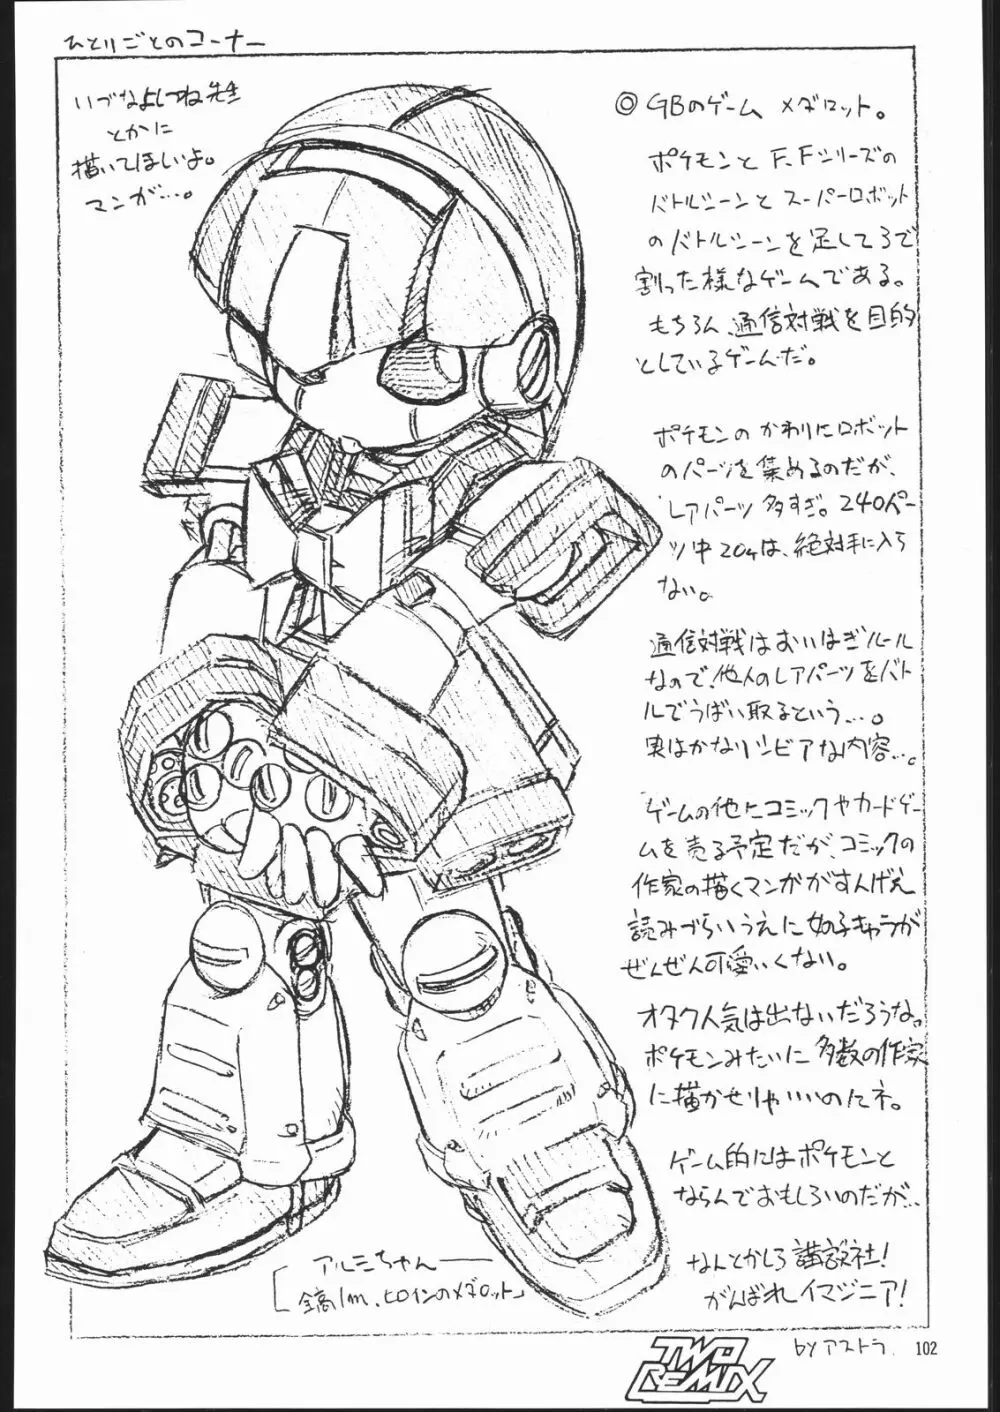 ひとりごとのコーナー
いづなよしつね先生
とかに
描いてほしいよ。
マンガ…。
◎GBのゲーム メダロット。
ポケモンと F.Fシリーズの
バトルシーンと スーパーロボット
のバトルシーンを足して3で
割った様なゲームである。
もちろん、通信対戦を目的
としているゲームだ。
ポケモンの かわりにロボット
のパーツを集めるのだが、
レアパーツ 多すぎ。240パー
ツ中204は、絶対手に入ら
ない。
通信対戦はおいはぎルール
なので、他人のレアパーツをバト
ルでうばい取るという…。
実はかなりシビアな内容…。
ゲームの他にコミックやカードゲー
ムを売る予定だが、コミックの
作家の描くマンガがすんげえ
読みづらいうえに女の子キャラが
ぜんぜん可愛いくない。
オタク人気は出ないだろうな。
ポケモンみたいに 多数の作家
に描かせりゃいいのにネ。
ゲーム的にはポケモンと
ならんでおもしろいのだが…
なんとかしろ 講談社!
がんばれイマジニア!
アルミちゃん
全高1m、ヒロインのメダロット」
by アストラ.
102
TWO
REMIX